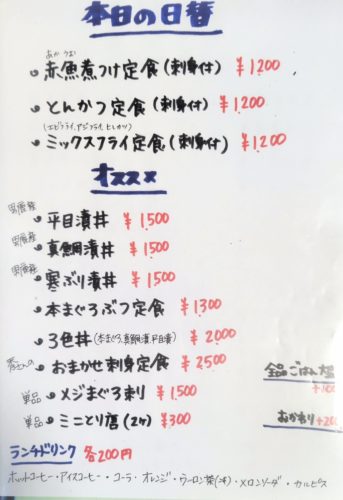 本日の日替
あかうお
赤魚煮つけ定食(刺身付) ¥1,200
とんかつ定食(刺身付) ¥1,200
(エビフライ、アジフライ、ヒレカツ)
ミックスフライ定食(刺身付) ¥1,200
オススメ
平目漬丼 ¥1,500
真鯛漬丼 ¥1,500
寒ぶり漬丼 ¥1,500
本まぐろぶつ定食 ¥1,300
3色丼(本まぐろ、真鯛漬、平目漬) ¥2,000
おまかせ刺身定食 ¥2,500
全品ごはん大盛
単品 メジまぐろ刺し ¥1,500
+100
単品 ミニとり唐(2ヶ) ¥300
おかわり +200
ランチドリンク 各200円
ホットコーヒー・アイスコーヒー・コーラ・オレンジ・ウーロン茶(冷)・メロンソーダ・カルピス